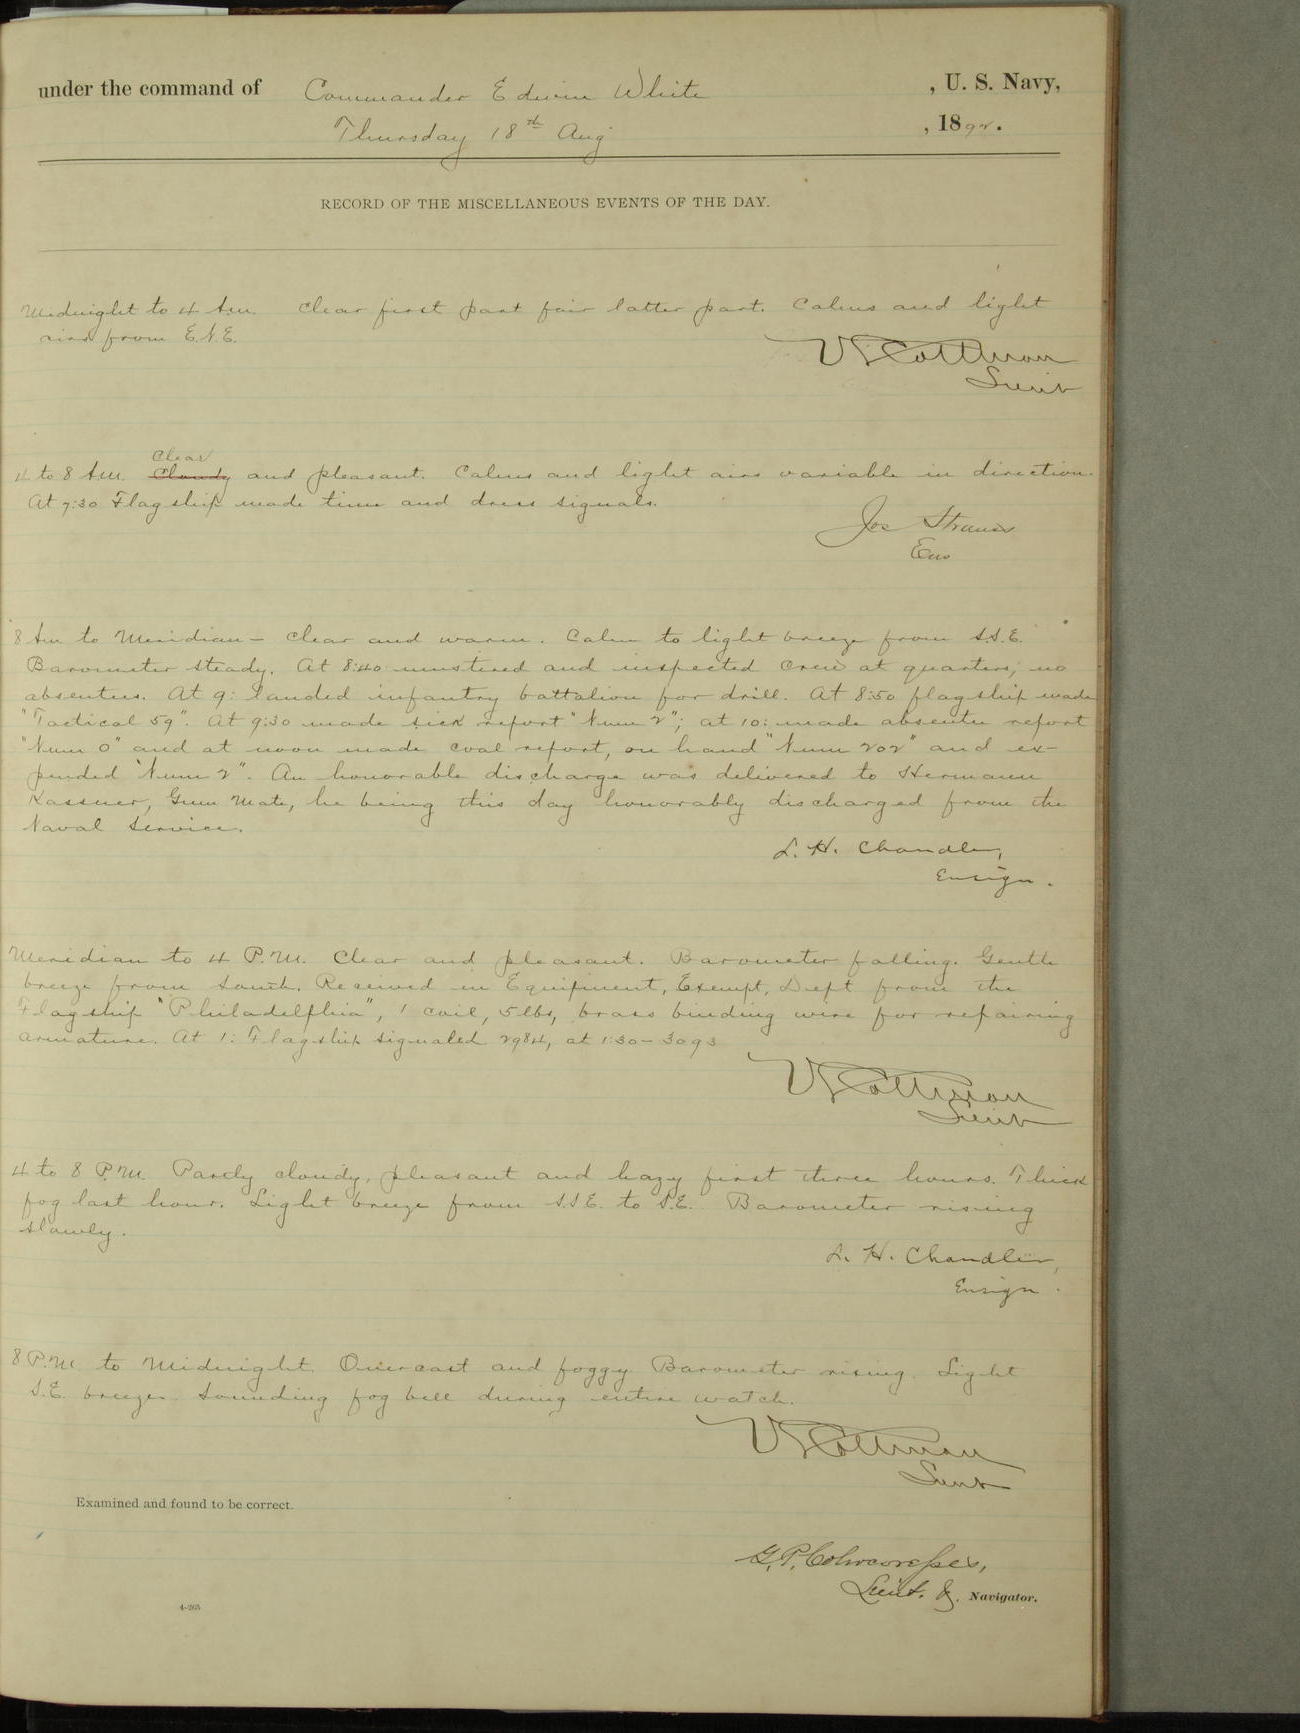 under the command of Commander Edwin White , U. S. Navy,
Thursday 18th Aug , 1892.
RECORD OF THE MISCELLANEOUS EVENTS OF THE DAY.
Midnight to 4 Am. Clear first part fair latter part. Calms and light
airs from E.N.E.
V S Cottman
Lieut
Clear
4 to 8 Am. Cloudy and pleasant. Calms and light airs variable in direction.
At 7:30 Flagship made time and dress signals.
Jos Strauss
Ens
8 Am to Meridian — Clear and warm. Calm to light breeze from S.S.E.
Barometer steady. At 8:40 mustered and inspected crew at quarters; no
absentees. At 9: landed infantry battalion for drill. At 8:50 flagship made
"Tactical 59". At 9:30 made sick report "Num 2"; at 10: made absentee report
"Num 0" and at noon made coal report, on hand "Num 202" and ex-
pended "Num 2". An honorable discharge was delivered to Hermann
Kassner, Gun Mate, he being this day honorably discharged from the
Naval Service.
L. H. Chandler,
Ensign.
Meridian to 4 P.M. Clear and pleasant. Barometer falling. Gentle
breeze from South. Received in Equipment, Exempt, Dept from the
Flagship "Philadelphia", 1 coil, 5 lbs, brass binding wire for repairing
armature. At 1: Flagship signaled 2984, at 1:30 - 3093
V S Cottman
Lieut
4 to 8 P.M. Partly cloudy, pleasant and hazy first three hours. Thick
fog last hour. Light breeze from S.S.E. to S.E. Barometer rising
slowly.
L. H. Chandler,
Ensign.
8 P.M. to Midnight. Overcast and foggy Barometer rising. Light
S.E. breeze. Sounding fog bell during entire watch.
V S Cottman
Lieut
Examined and found to be correct.
G. P. Colvocoresses,
Lieut. & Navigator.
4-265